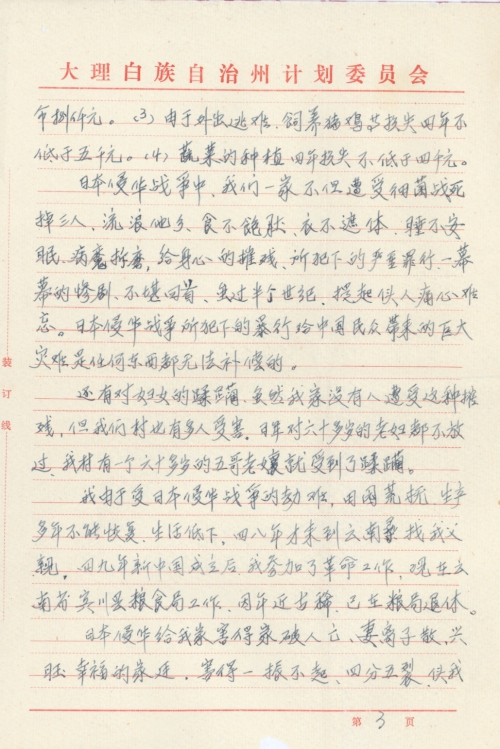 大理白族自治州计划委员会
币捌仟元。(3)由于外出逃难,饲养猪鸡等损失四年不
低于五千元。(4)蔬菜的种植四年损失不低于四千元。
日本侵华战争中,我们一家不但遭受细菌战死
掉三人,流浪他乡、食不饱肚、衣不遮体、睡不安
眠、病魔折磨,给身心的摧残、所犯下的严重罪行,一幕
幕的惨剧、不堪回首,虽过半个世纪,提起使人痛心难
忘。日本侵华战争所犯下的暴行给中国民众带来的巨大
灾难是任何东西都无法补偿的。
还有对妇女的蹂躏,虽然我家没有人遭受这种摧
残,但我们村也有多人受害。日军对六十多岁的老妇都不放
过,我村有一个六十多岁的五哥老孃就受到了蹂躏。
我由于受日本侵华战争的劫难,田园荒抚,生产
多年不能恢复,生活低下,四八年才来到云南寻找我父
亲。四九年新中国成立后,我参加了革命工作,现在云
南省宾川县粮食局工作,因年近古稀,已在粮局退休。
日本侵华给我家害得家破人亡、妻离子散,兴
旺幸福的家庭,害得一振不起、四分五裂,使我
装订线
第3页